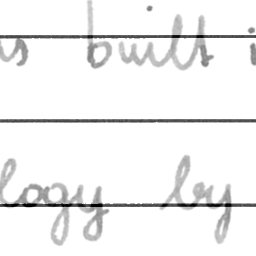 built
logy by